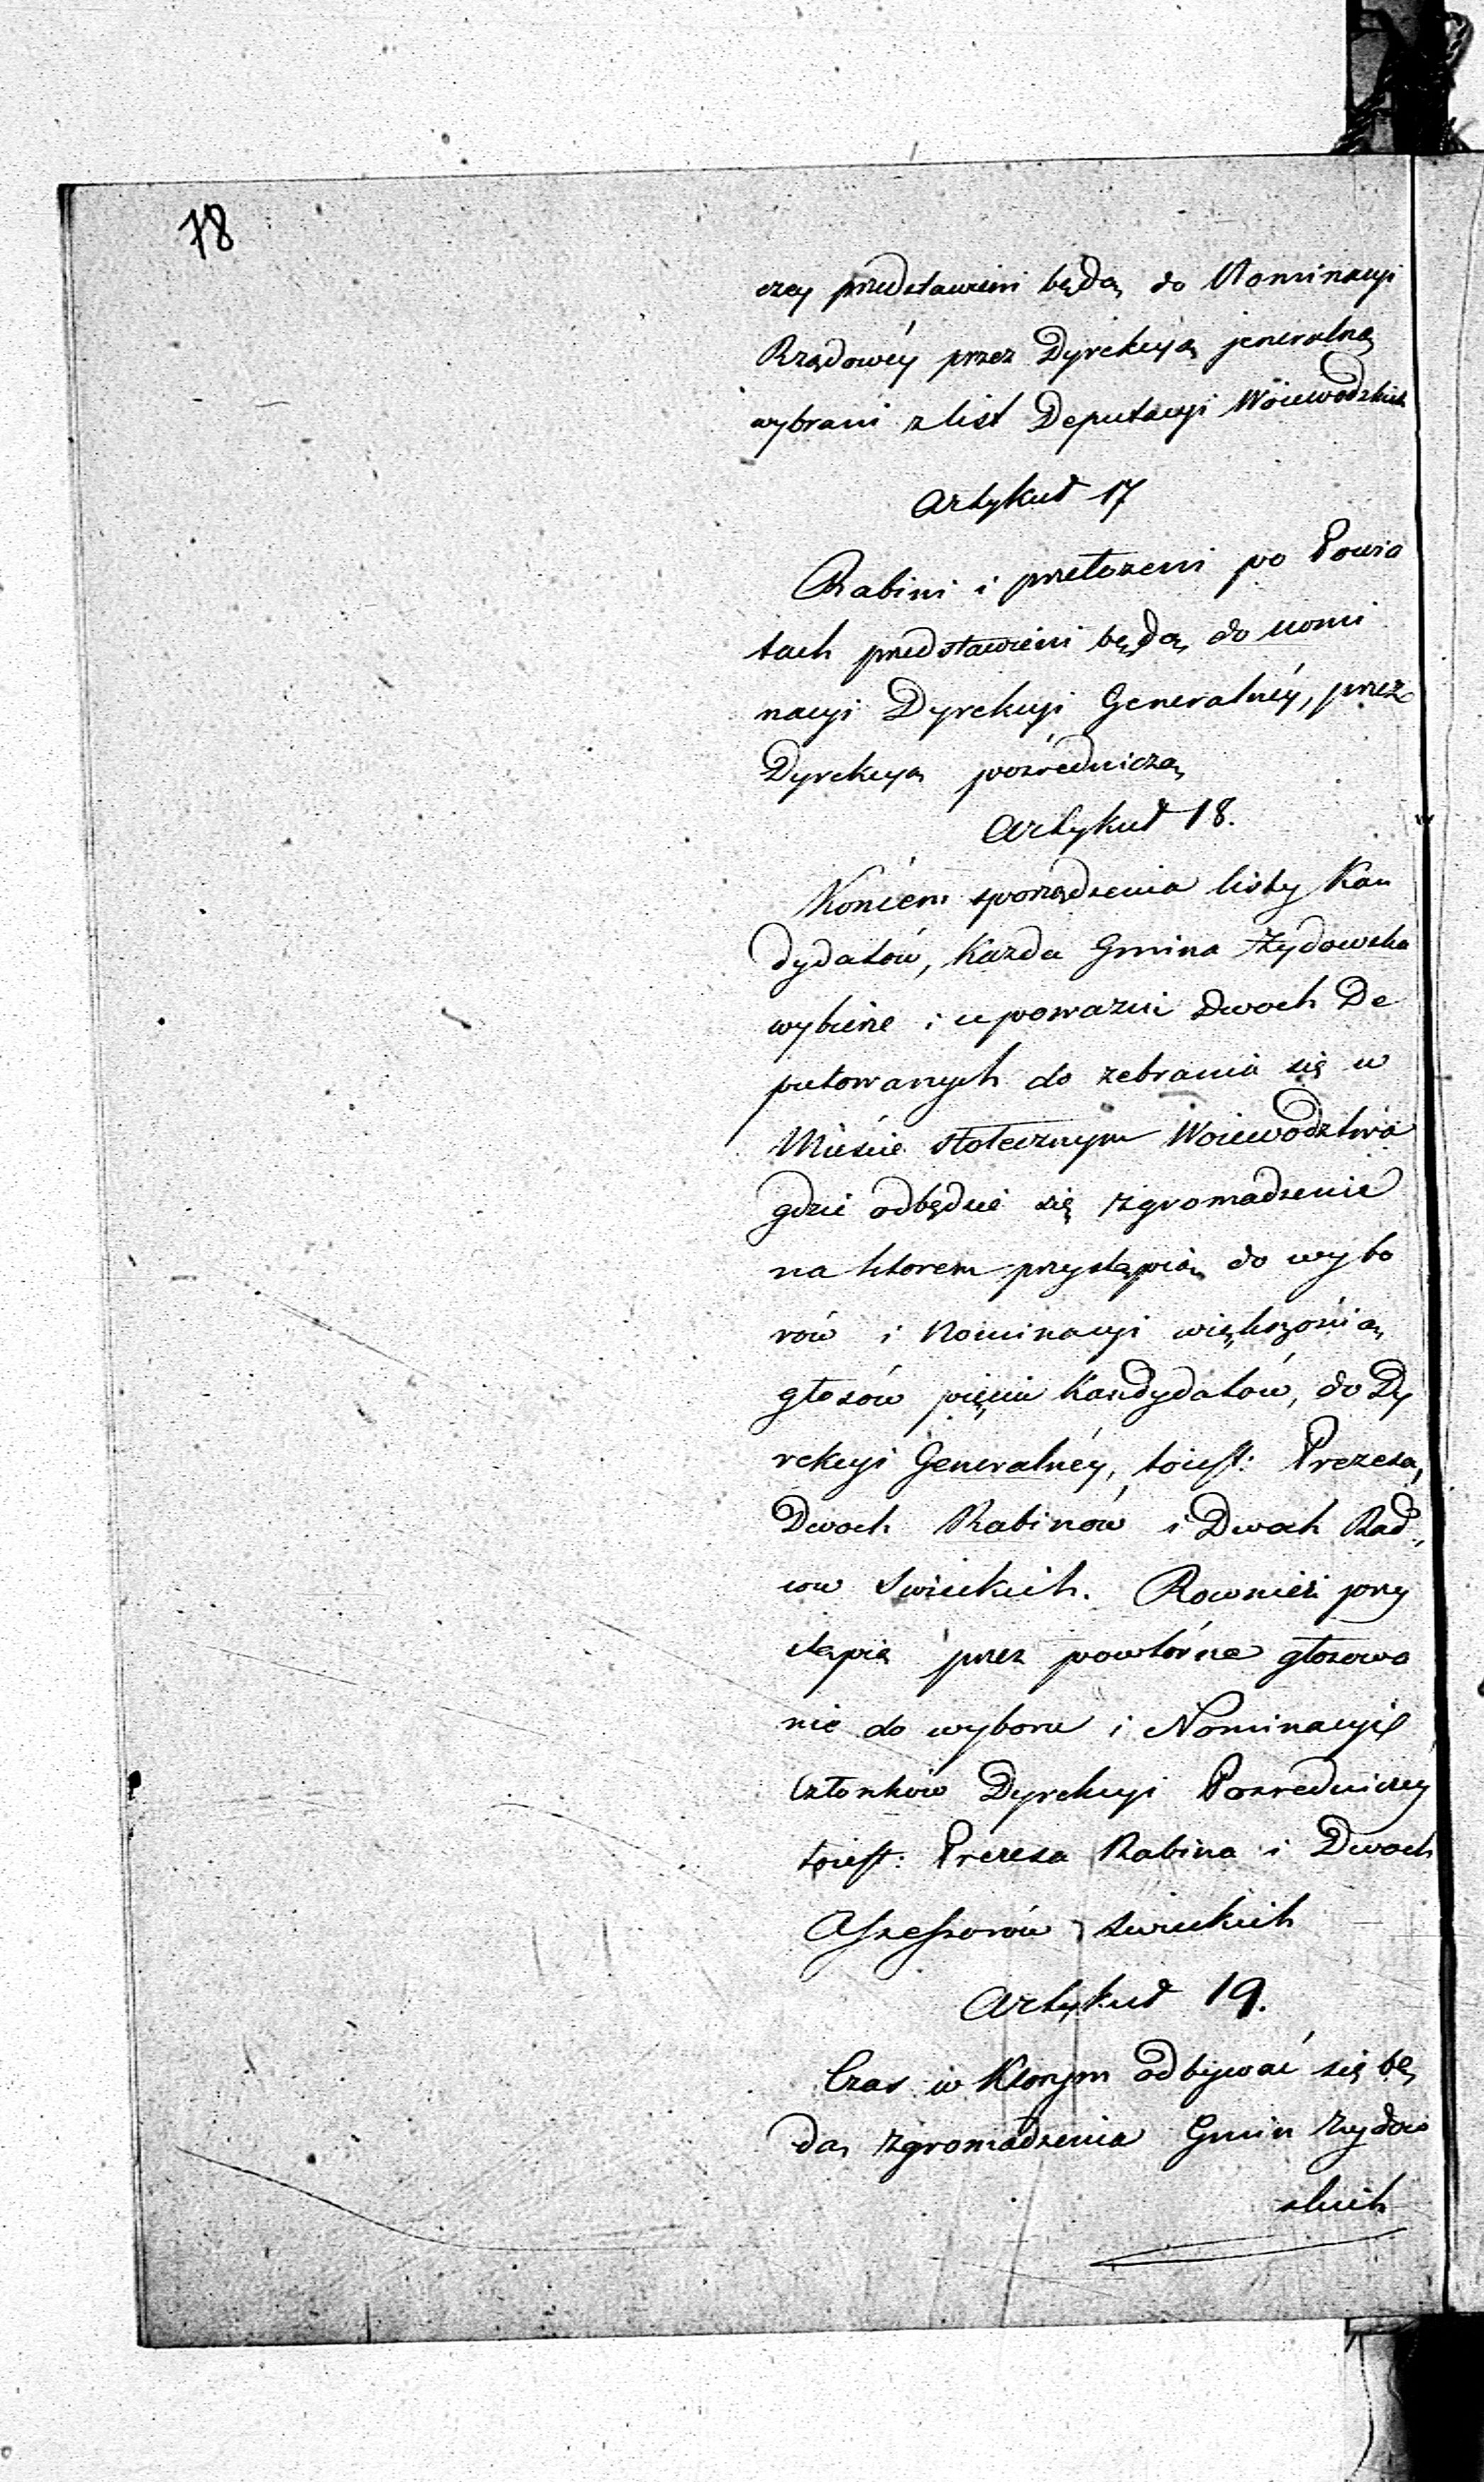 78
czey przedstawieni będą do Nominacyi
Rządowéy przez Dyrekcyą jeneralną
wybrani z list Deputacyi Woiewodzkich
Artykuł 17
Rabini i przełożeni po Powia
tach przedstawieni będą do nomi
nacyi Dyrekcyi Generalnéy, przez
Dyrekcyą pośredniczą
Artykuł 18.
Końcem sporządzenia listy Kan
dydatów, każda Gmina Żydowska
wybierze i upoważni Dwoch De
putowanych do zebrania się w
Mieście stołecznym Woiewodztwa
gdzie odbędzie się zgromadzenie
na ktorem przystąpią do wybo
rów i Nominacyi większością
głosów pięciu Kandydatów, do Dy
rekcyi Generalnéy, toiest: Prezesa,
Dwoch Rabinów i Dwoch Rad,
cow Swieckich. Rownież przy
stąpią przez powtórne głosowa
nie do wyboru i Nominacyi
Członków Dyrekcyi Posredniczey
toiest: Prezesa Rabina i Dwoch
Assessorów swieckich
Artykuł 19.
Czas w Ktorym odbywać się bę
dą zgromadzenia Gmin Żydow
skich